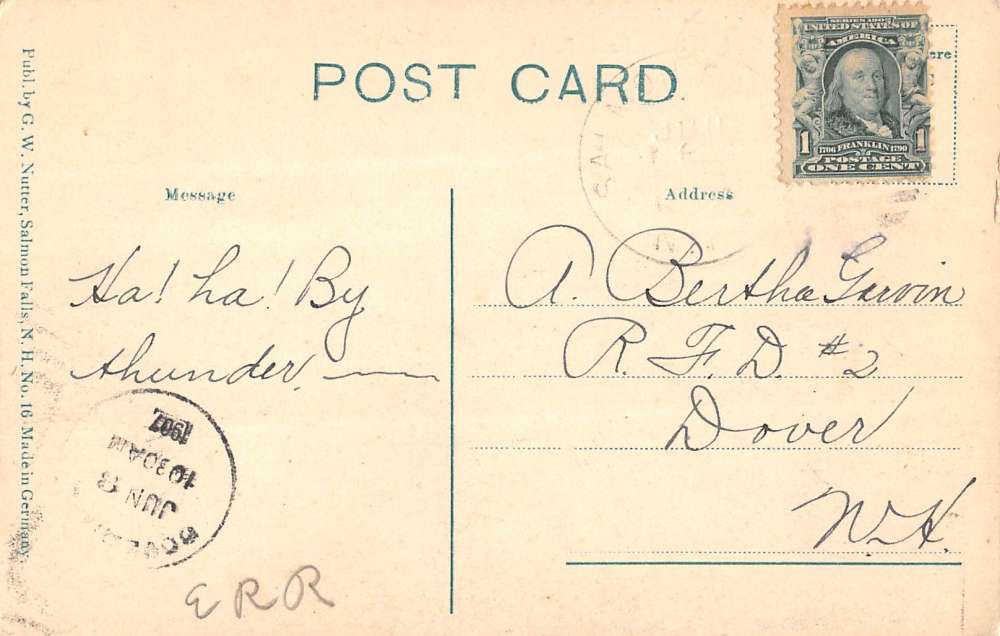 POST CARD
SERIES 1902
UNITED STATES OF
AMERICA
1 1
1706 FRANKLIN 1790
POSTAGE
ONE CENT
Publ. by G. W. Nutter, Salmon Falls, N. H. No. 16 Made in Germany.
Message
Ha! ha! By
thunder.
Address
A. Bertha Garvin
R. F. D. #2
Dover
N.H.
1907
10 30 AM
JUN 3
E R R